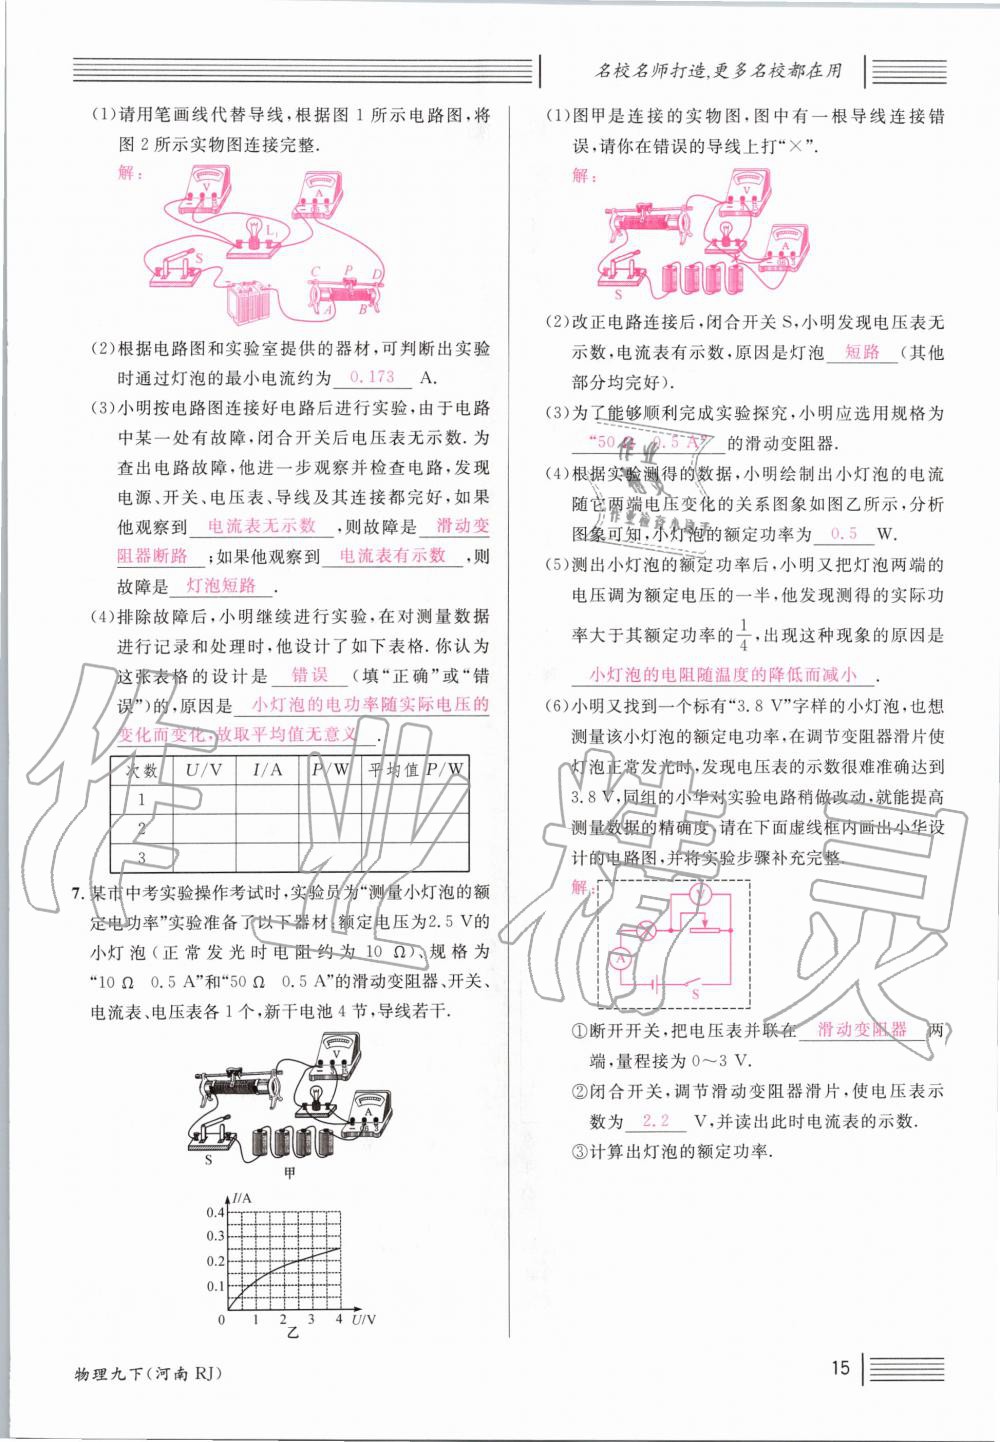 名校名师打造,更多名校都在用
(1)请用笔画线代替导线,根据图 1 所示电路图,将
图 2 所示实物图连接完整.
解:
V
A
L₁
S
C P D
A B
(2)根据电路图和实验室提供的器材,可判断出实验
时通过灯泡的最小电流约为 0.173 A.
(3)小明按电路图连接好电路后进行实验,由于电路
中某一处有故障,闭合开关后电压表无示数.为
查出电路故障,他进一步观察并检查电路,发现
电源、开关、电压表、导线及其连接都完好,如果
他观察到 电流表无示数 ,则故障是 滑动变
阻器断路 ;如果他观察到 电流表有示数 ,则
故障是 灯泡短路 .
(4)排除故障后,小明继续进行实验,在对测量数据
进行记录和处理时,他设计了如下表格.你认为
这张表格的设计是 错误 (填“正确”或“错
误”)的,原因是 小灯泡的电功率随实际电压的
变化而变化,故取平均值无意义 .
次数 U/V I/A P/W 平均值 P/W
1
2
3
7.某市中考实验操作考试时,实验员为“测量小灯泡的额
定电功率”实验准备了以下器材:额定电压为2.5 V的
小灯泡(正常发光时电阻约为 10 Ω)、规格为
“10 Ω 0.5 A”和“50 Ω 0.5 A”的滑动变阻器、开关、
电流表、电压表各 1 个,新干电池 4 节,导线若干.
V
A
S
甲
I/A
0.4
0.3
0.2
0.1
0 1 2 3 4 U/V
乙
(1)图甲是连接的实物图,图中有一根导线连接错
误,请你在错误的导线上打“×”.
解:
V
A
S
(2)改正电路连接后,闭合开关 S,小明发现电压表无
示数,电流表有示数,原因是灯泡 短路 (其他
部分均完好).
(3)为了能够顺利完成实验探究,小明应选用规格为
“50 Ω 0.5 A” 的滑动变阻器.
(4)根据实验测得的数据,小明绘制出小灯泡的电流
随它两端电压变化的关系图象如图乙所示,分析
图象可知,小灯泡的额定功率为 0.5 W.
(5)测出小灯泡的额定功率后,小明又把灯泡两端的
电压调为额定电压的一半,他发现测得的实际功
率大于其额定功率的1/4,出现这种现象的原因是
小灯泡的电阻随温度的降低而减小 .
(6)小明又找到一个标有“3.8 V”字样的小灯泡,也想
测量该小灯泡的额定电功率,在调节变阻器滑片使
灯泡正常发光时,发现电压表的示数很难准确达到
3.8 V,同组的小华对实验电路稍做改动,就能提高
测量数据的精确度.请在下面虚线框内画出小华设
计的电路图,并将实验步骤补充完整.
解:
V
A
S
①断开开关,把电压表并联在 滑动变阻器 两
端,量程接为 0～3 V.
②闭合开关,调节滑动变阻器滑片,使电压表示
数为 2.2 V,并读出此时电流表的示数.
③计算出灯泡的额定功率.
作业精灵
物理九下(河南 RJ)
15